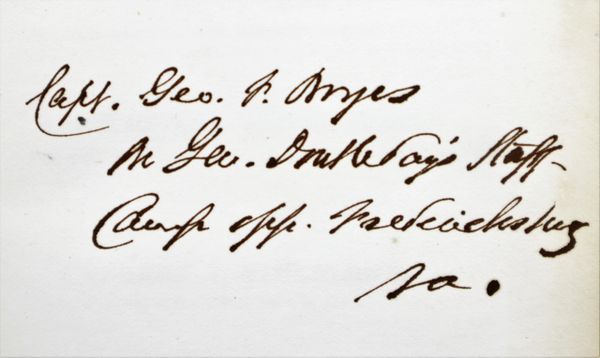 Capt. Geo. F. Noyes
on Gen. Doubleday's Staff
Camp opp. Fredericksburg
Va.